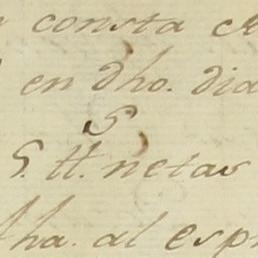 consta
en dho. dia
S
S. H. netas
fha. al esp